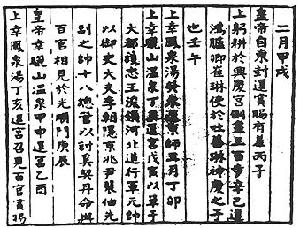 二月甲戌
皇帝自東封還賞賜有差丙子
上躬耕於興慶宮側盡三百步辛己還
鴻臚卿崔琳使於吐蕃琳神慶之子
也壬午
上幸鳳泉湯癸未還京師三月丁卯
上幸驪山溫泉丁亥還宮戊寅以單子
大都護忠王浚領河北道行軍元帥
以御史大夫李朝隱京兆尹裴伷先
副之帥十八總管以討奚契丹命與
百官相見於光順門庚辰
皇帝幸驪山溫泉甲申還宮乙酉
上幸鳳泉湯丁亥還宮召見百官賞賜